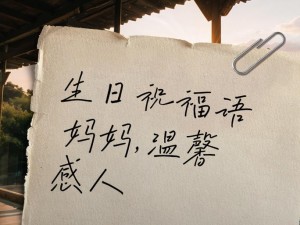 生日祝福语
妈妈,温馨
感人